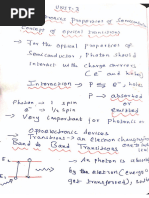 UNIT-3
Properties of
Concept of optical transitions
→ For the optical properties of
Semiconductor, Photon should
interact with charge carriers
e⁻ and holes
Interaction → P e⁻ holes
P → absorbed
or
emitted
Photon : 1 spin
e⁻ : ½ spin
Very important for Photonic
Optoelectronic devices
Transitions → an electron changing
Band to Band Transitions
An Photon is absorbed
by the electron (energy
get transferred),
E₂
E₁